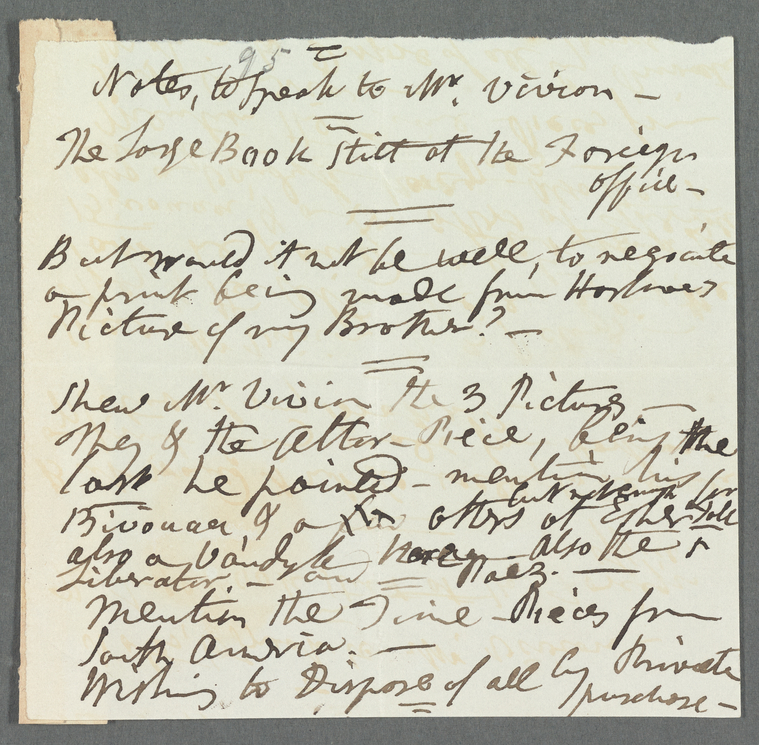 95
Notes, to speak to Mr. Vivion —
The Large Book still at the Foreign
office —
But would it not be well, to negociate
a print being made from Harlowes
Picture of my Brother? —
Shew Mr. Vivion the 3 Pictures —
They & the Altar-Piece, being the
last he painted — mention his
but not enough for
Bivouac, & a few others at
also a Vandyke also the
Liberator — and Paez. —
Mention the Time-Pieces from
South America. —
Wishing to Dispose of all by Private
purchase —